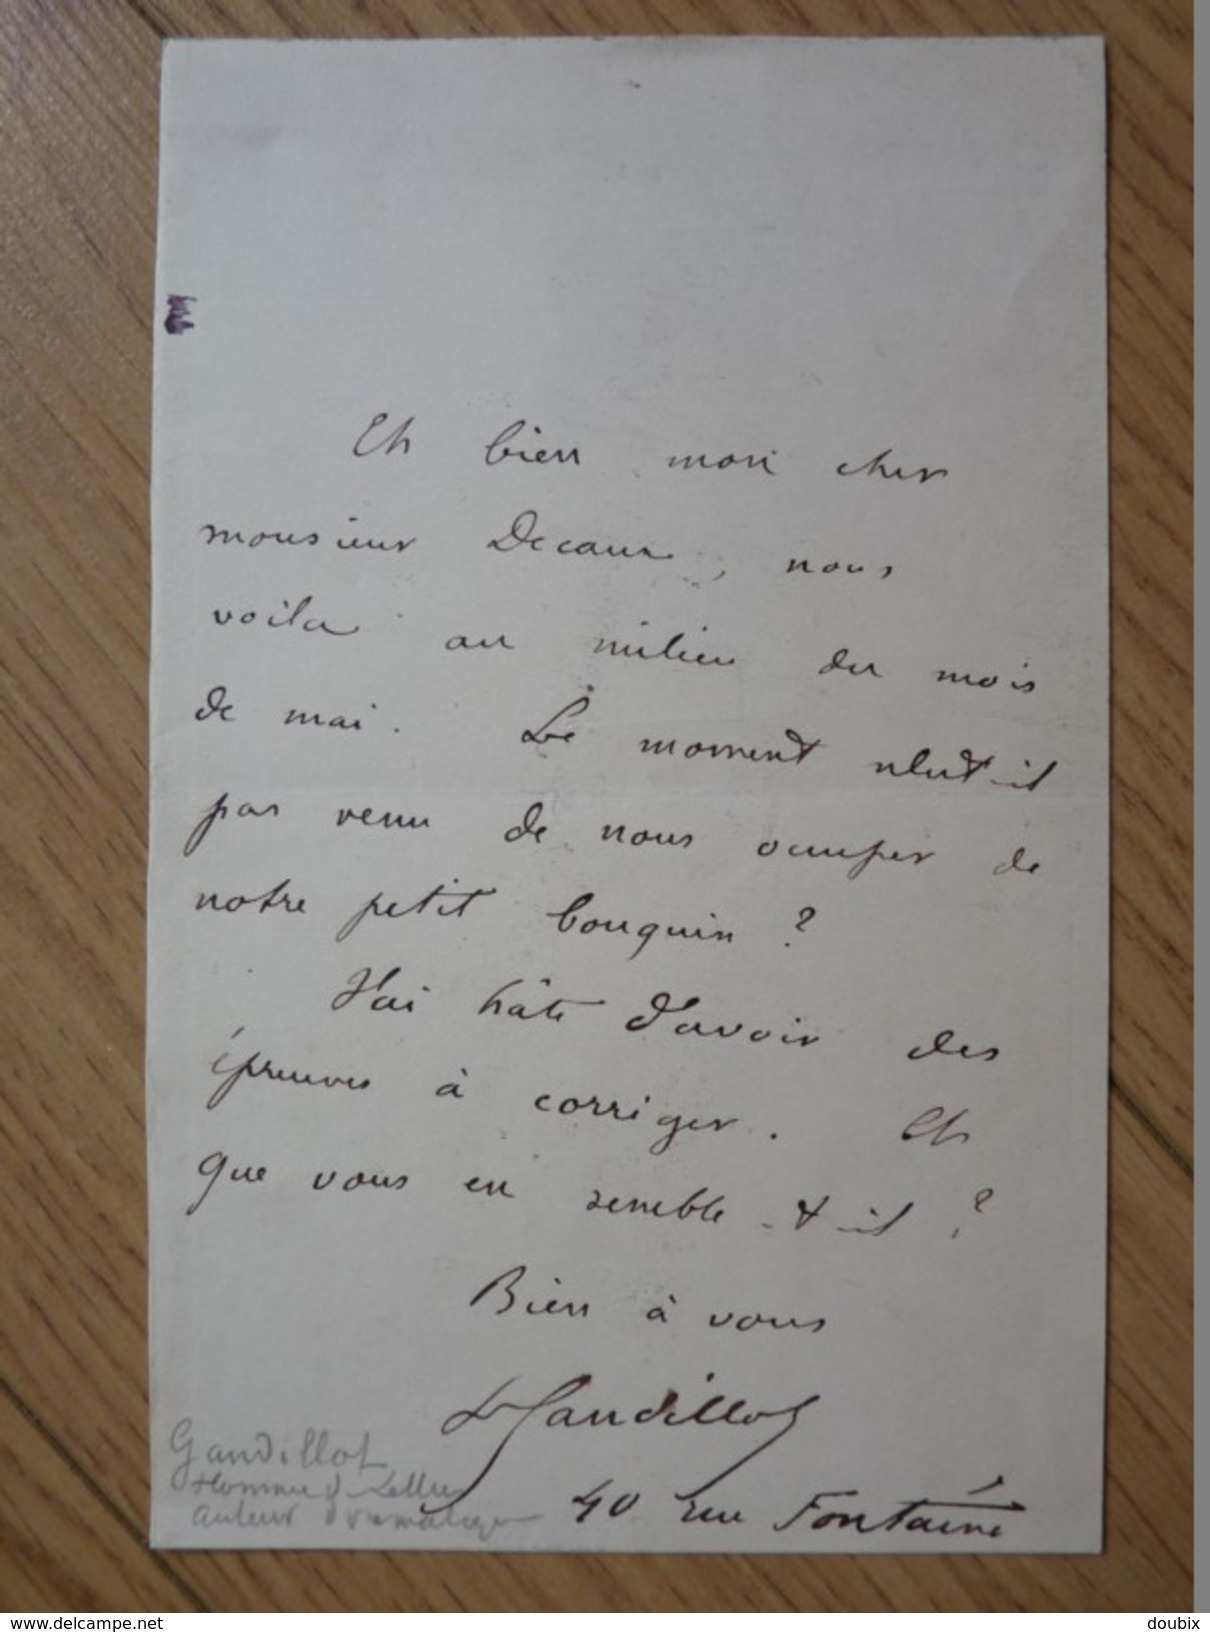 Eh bien mon cher
monsieur Decaux, nous
voila au milieu du mois
de mai. Le moment n'est-il
pas venu de nous occuper de
notre petit bouquin ?
J'ai hâte d'avoir des
épreuves à corriger. Eh
que vous en semble-t-il ?
Bien à vous
L Gandillot
40 rue Fontaine
Gandillot
Homme d Lettres
auteur dramatique
www.delcampe.net
doubix